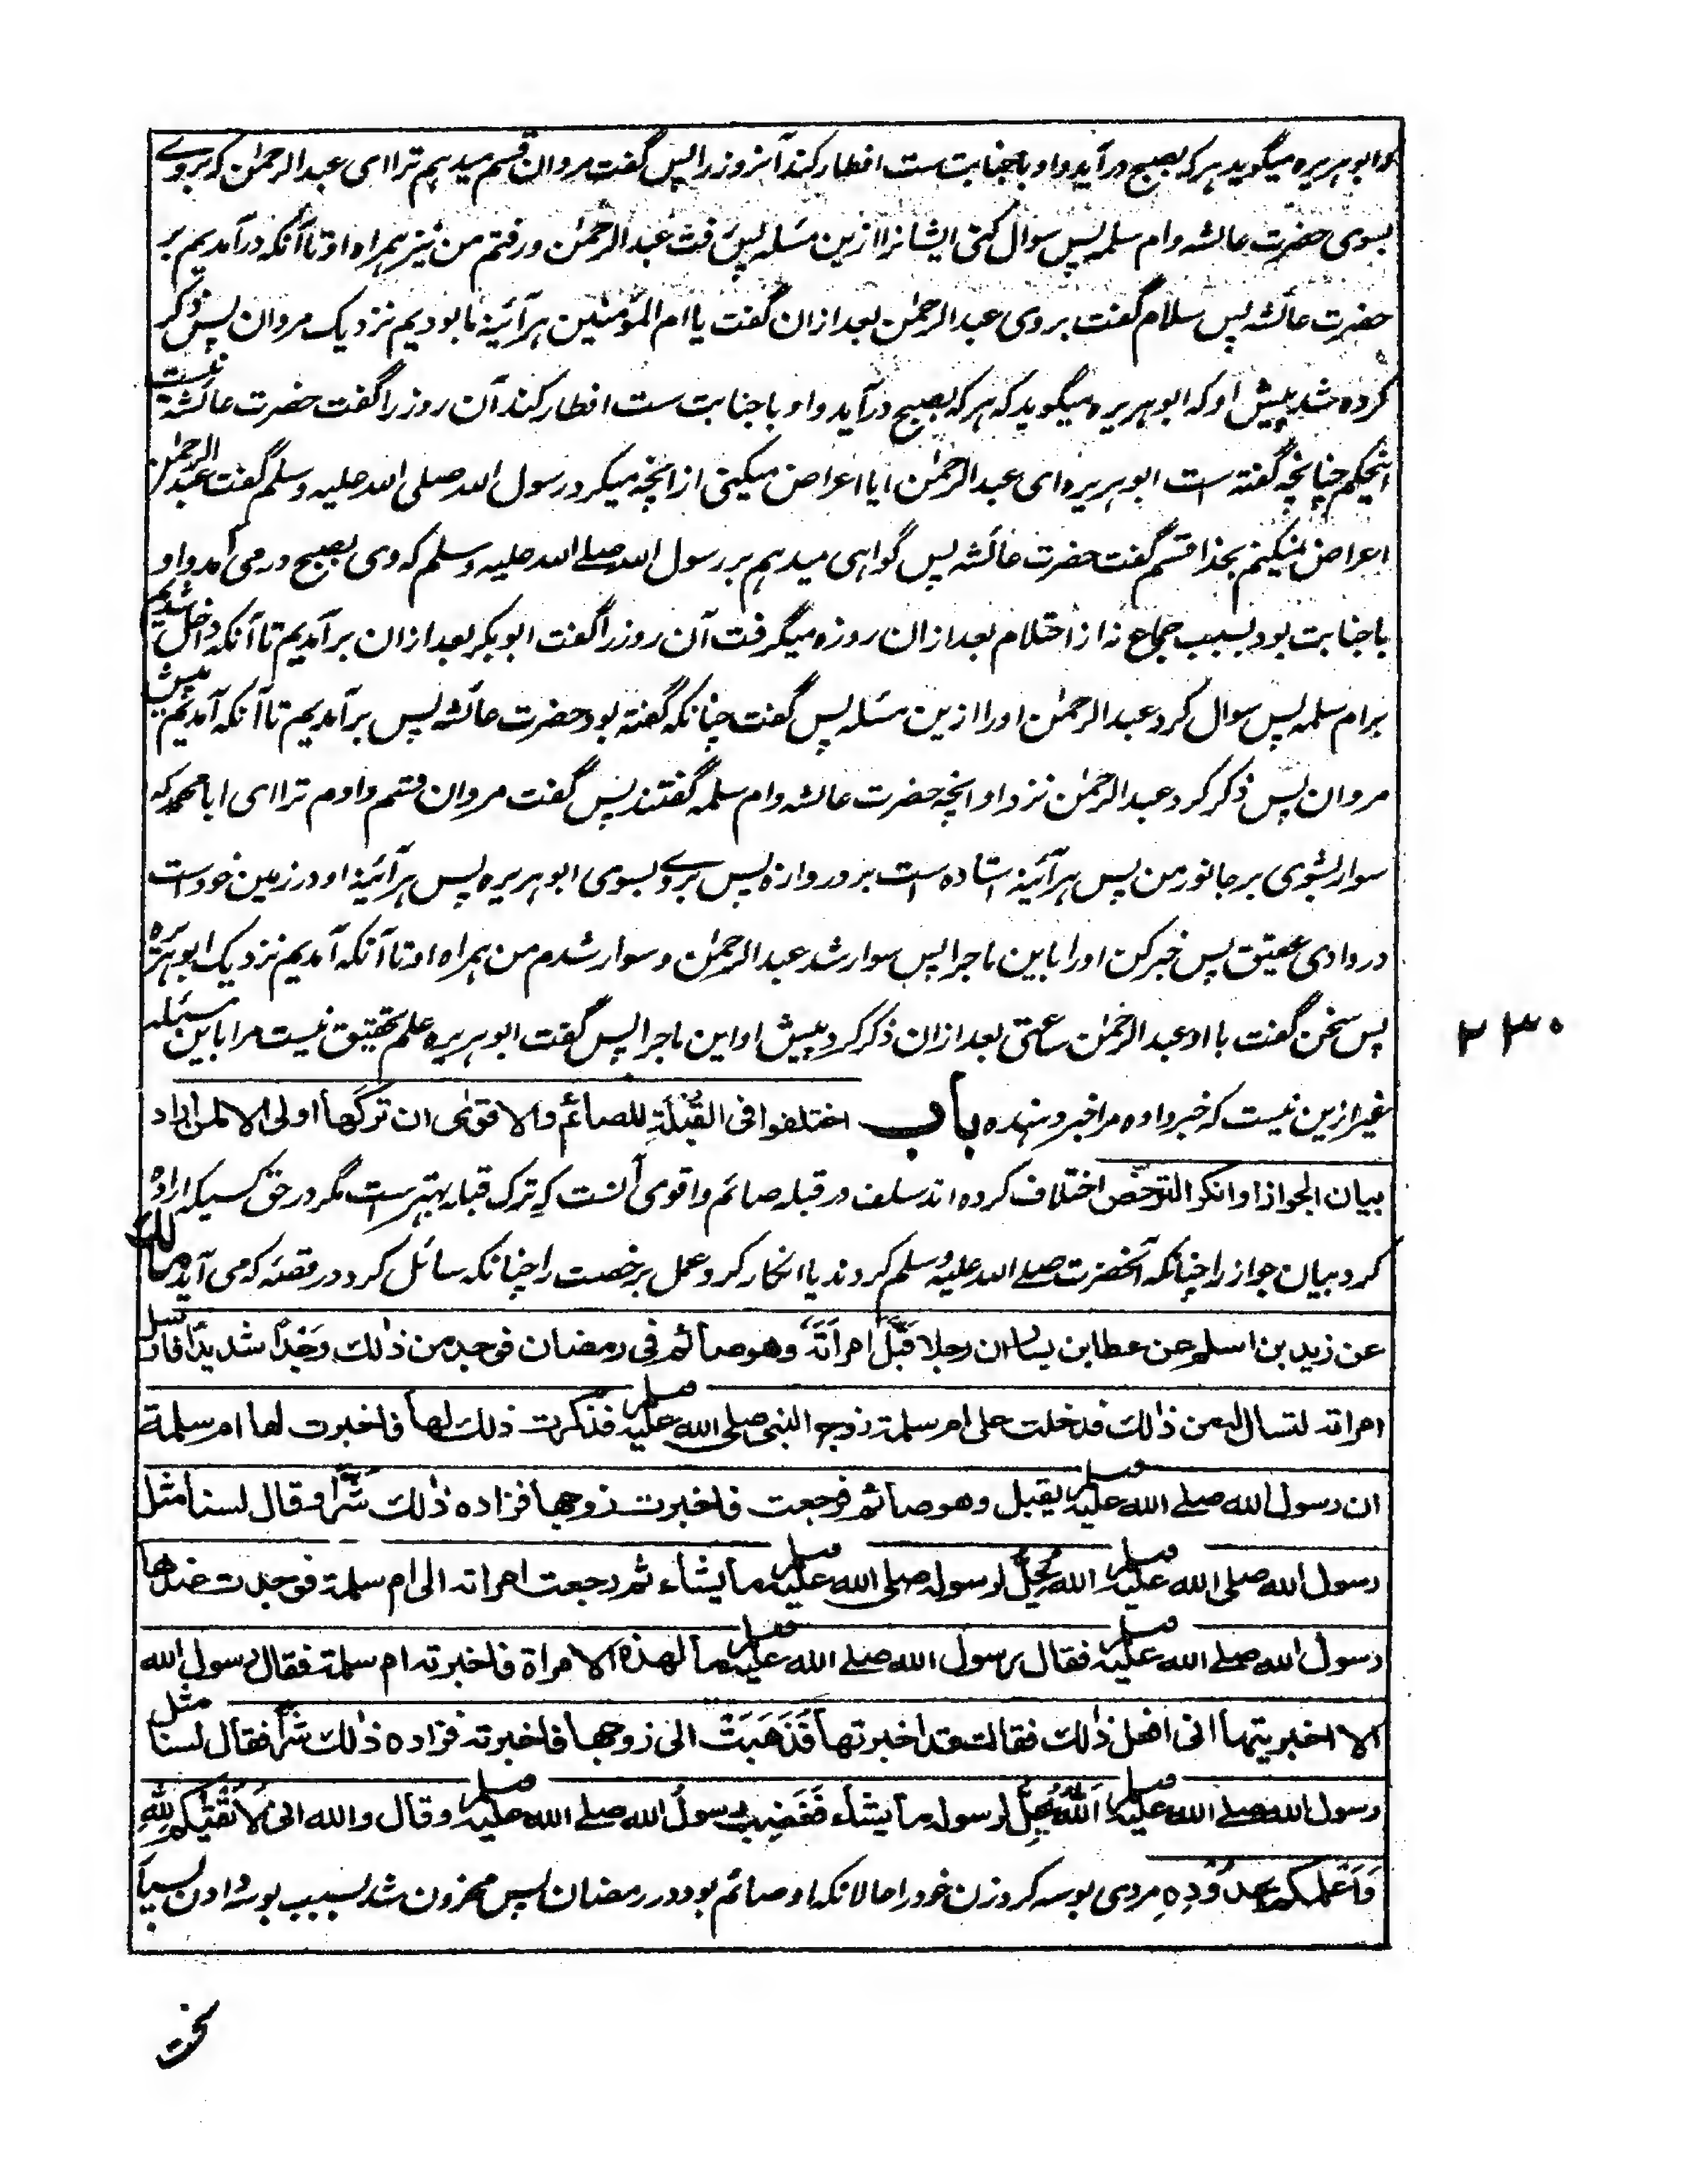 که ابوهریره میگوید هر که بصبح درآید و او با جنابت ست افطار کند آنروز را پس گفت مروان قسم میدهم ترا ای عبدالرحمٰن که بروے
بسوی حضرت عائشه و ام سلمه پس سوال کنی ایشانرا ازین مسئله پس رفت عبدالرحمٰن و رفتم من نیز همراه او تا آنکه درآمدیم بر
حضرت عائشه پس سلام گفت بروی عبدالرحمٰن بعد ازان گفت یا ام المؤمنین هر آئینه ما بودیم نزدیک مروان پس ذکر
کرده شد پیش او که ابوهریره میگوید که هر که بصبح درآید و او با جنابت ست افطار کند آن روز را گفت حضرت عائشة نیست
اینحکم چنانچه گفته است ابوهریره ای عبدالرحمٰن ایا اعراض میکنی از انچه میکرد رسول الله صلی الله علیه وسلم گفت عبدالرحمٰن
اعراض نمیکنم بخدا قسم گفت حضرت عائشه پس گواهی میدهم بر رسول الله صلے الله علیه وسلم که وی بصبح درمی آمد و او
با جنابت بود بسبب جماع نه از احتلام بعد ازان روزه میگرفت آن روز را گفت ابوبکر بعد ازان برآمدیم تا آنکه داخل شدیم
برام سلمه پس سوال کرد عبدالرحمٰن او را ازین مسئله پس گفت چنانکه گفته بود حضرت عائشه پس برآمدیم تا آنکه آمدیم پیش
مروان پس ذکر کرد عبدالرحمٰن نزد او انچه حضرت عائشه و ام سلمه گفتند پس گفت مروان قسم دادم ترا ای ابا محمد که
سوار بشوی بر جانور من پس هر آئینه استاده است بر دروازه پس بروے بسوی ابوهریره پس هر آئینه او در زمین خود است
در وادی عقیق پس خبر کن او را باین ماجرا پس سوار شد عبدالرحمٰن و سوار شدم من همراه او تا آنکه آمدیم نزدیک ابوهریره
پس سخن گفت با او عبدالرحمٰن ساعتی بعد ازان ذکر کرد پیش او این ماجرا پس گفت ابوهریره علم تحقیق نیست مرا باین مسئله
غیر ازین نیست که خبر داده مرا خبر دهنده باب اختلفوا فی القُبْلَةِ للصائم والاقوٰی ان ترکها اولی الا لمن اراد
بیان الجواز او انکر الترخّص اختلاف کرده اند سلف در قبله صائم و اقوی آنست که ترک قبله بهتر ست مگر در حق کسیکه اراده
کرد بیان جواز را چنانکه آنحضرت صلے الله علیه وسلم کردند یا انکار کرد عمل برخصت را چنانکه سائل کرد در قصئه که می آید مالك
عن زید بن اسلم عن عطا بن یسار ان رجلا قَبَّلَ امرأتَهٗ وهو صائم فی رمضان فوجد من ذٰلك وَجْدًا شدیدًا فارسل
امراته لتسال له عن ذٰلك فدخلت علی ام سلمة زوج النبی صلی الله علیه وسلم فذکرت ذلك لها فاخبرت لها ام سلمة
ان رسول الله صلے الله علیه وسلم یقبل وهو صائم فرجعت فاخبرت زوجها فزاده ذٰلك شَرًّا وقال لسنا مثل
رسول الله صلی الله علیه وسلم الله یُحِلُّ لرسوله صلی الله علیه وسلم ما یشاء ثم رجعت امراته الی ام سلمة فوجدت عندها
رسول الله صلے الله علیه وسلم فقال رسول الله صلے الله علیه وسلم ما لهذه الامراة فاخبرته ام سلمة فقال رسول الله
الا اخبریتها انی افعل ذٰلك فقالت قد اخبرتها فَذَهَبَتْ الی زوجها فاخبرته فزاده ذٰلك شرًّا فقال لسنا مثل
رسول الله صلے الله علیه وسلم اَللّٰهُ یُحِلُّ لرسوله ما یشاء فَغَضِبَ رسولُ الله صلے الله علیه وسلم وقال والله انی لَاَتْقٰیکم لِلّٰهِ
وَاَعْلمکم بحدُوْدِهٖ مردی بوسه کرد زن خود را حالانکه او صائم بود در رمضان پس محزون شد بسبب بوسه دادن بسیار
سخت
۲۳۰